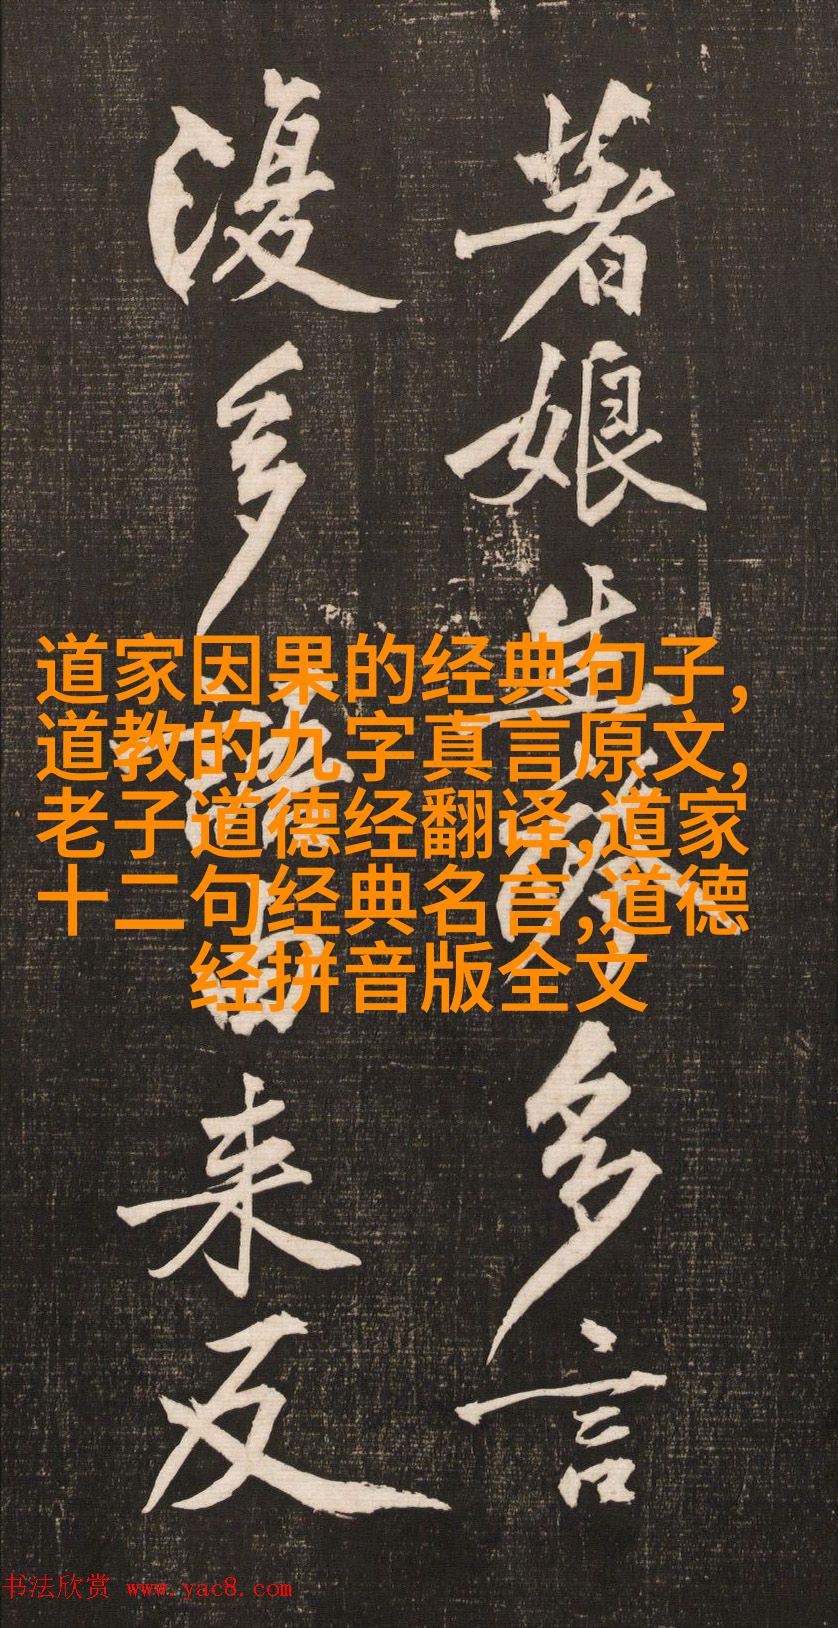 著娘生多言
復多語由来反
道家因果的经典句子,
道教的九字真言原文,
老子道德经翻译,道家
十二句经典名言,道德
经拼音版全文
书法欣赏 www.yac8.com